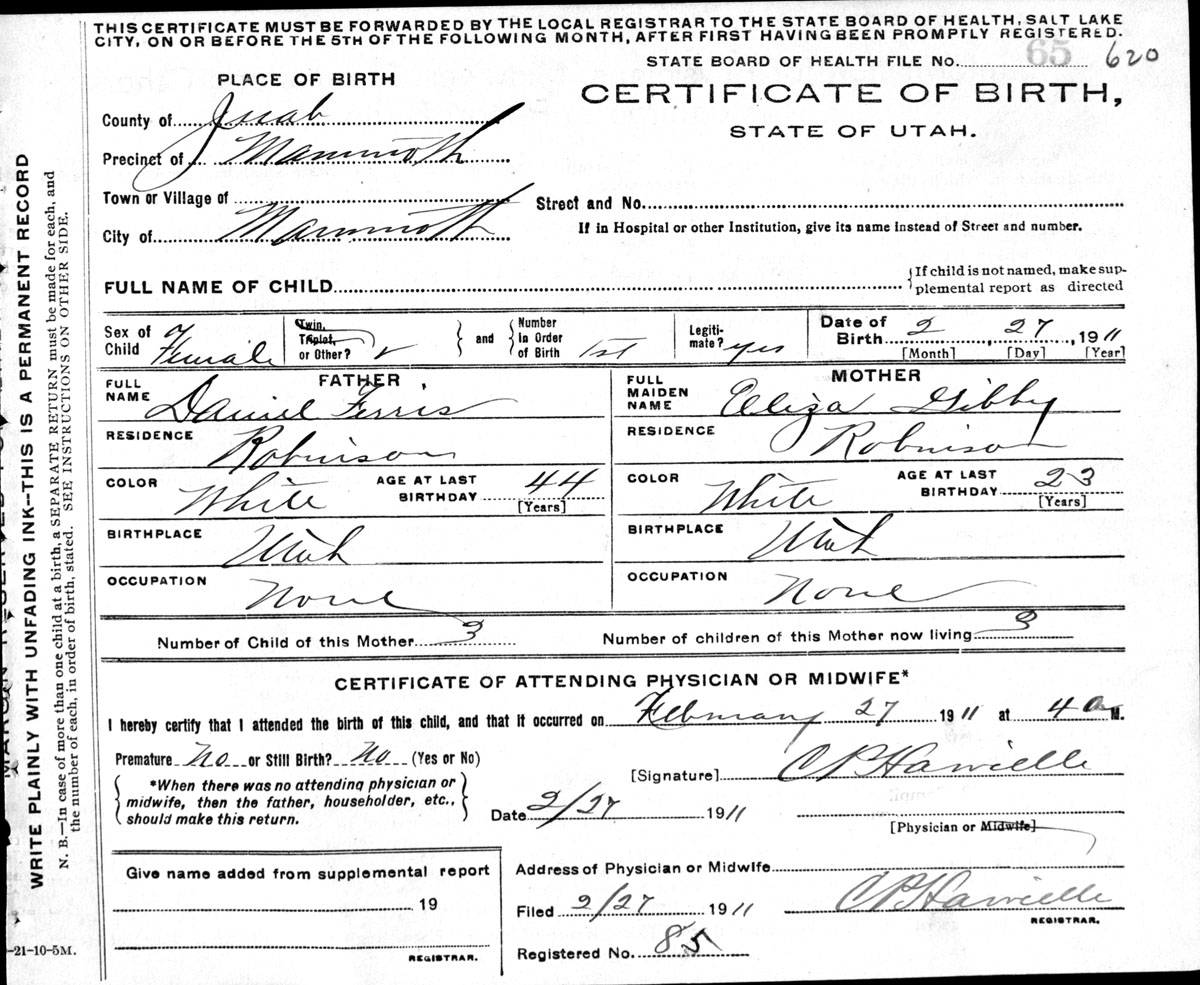 THIS CERTIFICATE MUST BE FORWARDED BY THE LOCAL REGISTRAR TO THE STATE BOARD OF HEALTH, SALT LAKE
CITY, ON OR BEFORE THE 5TH OF THE FOLLOWING MONTH, AFTER FIRST HAVING BEEN PROMPTLY REGISTERED.
STATE BOARD OF HEALTH FILE No. 65 620
PLACE OF BIRTH
CERTIFICATE OF BIRTH,
STATE OF UTAH.
County of Juab
Precinct of Mammoth
Town or Village of
Street and No.
City of Mammoth
If in Hospital or other Institution, give its name instead of Street and number.
FULL NAME OF CHILD
{If child is not named, make sup-
plemental report as directed
Sex of Child Female
Twin, Triplet, or Other?
and
Number in Order of Birth 1st
Legiti-mate? yes
Date of Birth 2, 27, 1911
[Month] [Day] [Year]
FATHER
FULL NAME Daniel Ferris
RESIDENCE Robinson
COLOR White AGE AT LAST BIRTHDAY 44
[Years]
BIRTHPLACE Utah
OCCUPATION None
MOTHER
FULL MAIDEN NAME Eliza Gibby
RESIDENCE Robinson
COLOR White AGE AT LAST BIRTHDAY 23
[Years]
BIRTHPLACE Utah
OCCUPATION None
Number of Child of this Mother 3 Number of children of this Mother now living 3
CERTIFICATE OF ATTENDING PHYSICIAN OR MIDWIFE*
I hereby certify that I attended the birth of this child, and that it occurred on February 27 1911 at 4 a M.
Premature No or Still Birth? No (Yes or No)
*When there was no attending physician or
midwife, then the father, householder, etc.,
should make this return.
[Signature]
Date 2/27 1911
[Physician or Midwife]
Give name added from supplemental report
19
REGISTRAR.
Address of Physician or Midwife
Filed 2/27 1911
REGISTRAR.
Registered No. 85
-21-10-5M.
WRITE PLAINLY WITH UNFADING INK--THIS IS A PERMANENT RECORD
N. B.—In case of more than one child at a birth, a SEPARATE RETURN must be made for each, and
the number of each, in order of birth, stated. SEE INSTRUCTIONS ON OTHER SIDE.